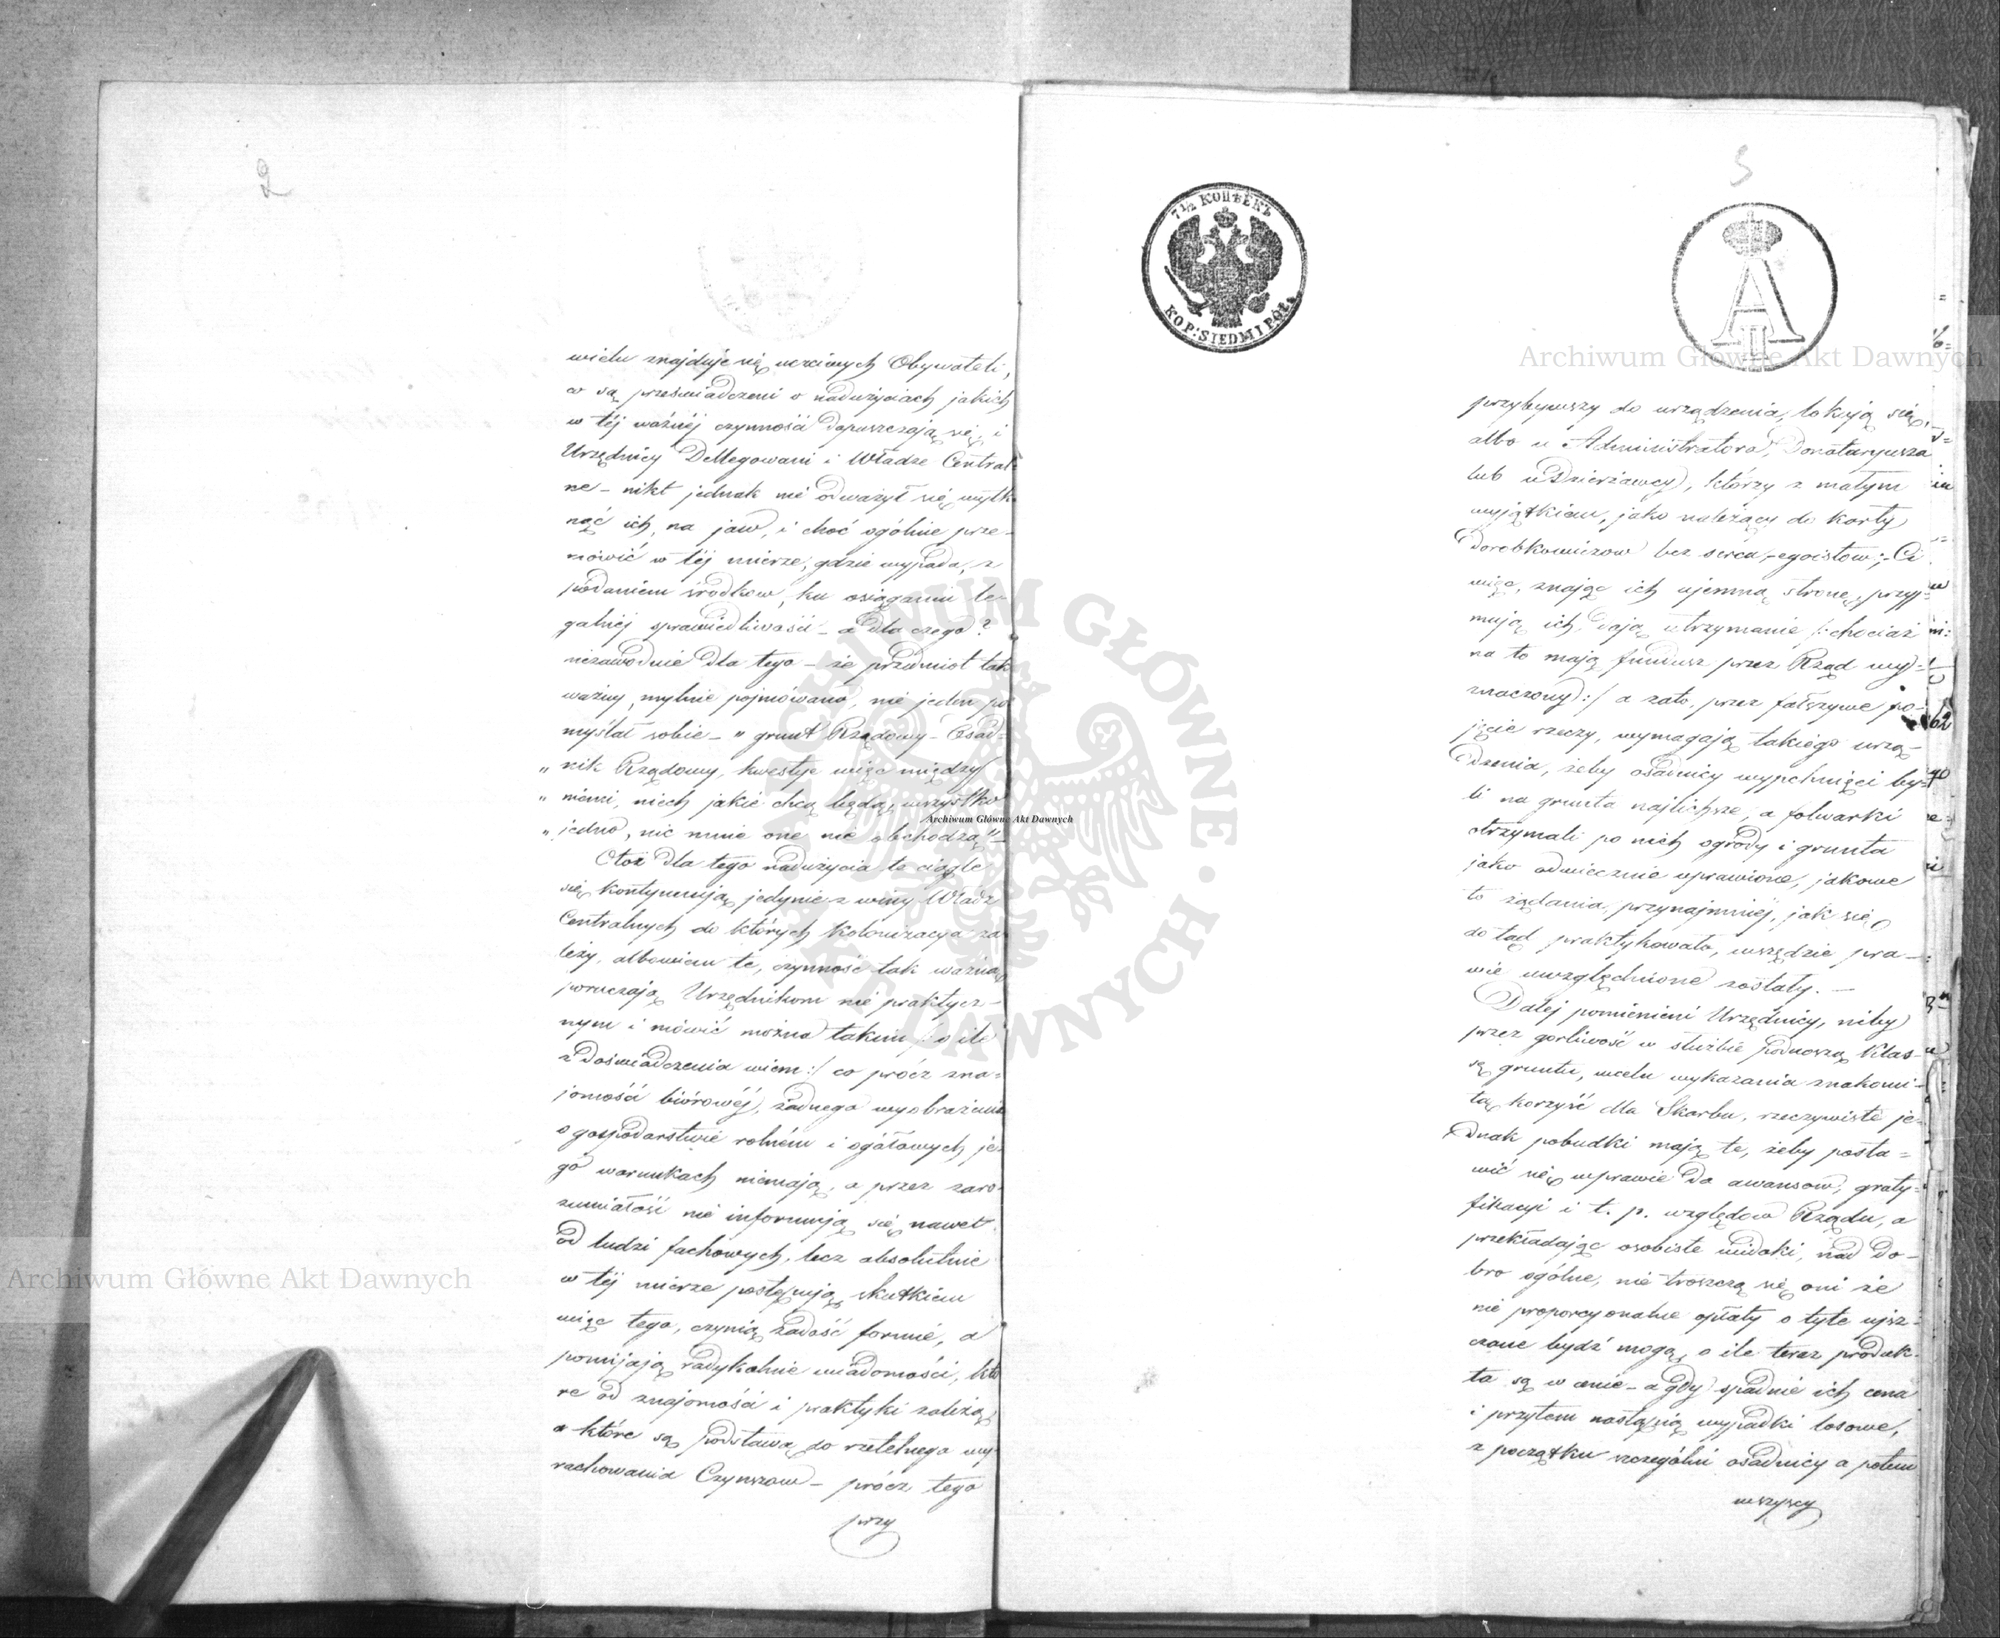 2
wielu znajduje się uczciwych Obywateli,
co są przeświadczeni o nadużyciach jakich
w téj ważnéj czynności dopuszczają się i
Urzędnicy Dellegowani i Władze Central-
ne – nikt jednak nie odważył się wytk-
nąć ich na jaw, i choć ogólnie prze-
mówić w téj mierze, gdzie wypada, z
podaniem środków, ku osiąganiu le-
galnéj sprawiedliwości – a dla czego?
niezawodnie dla tego – że przedmiot tak
ważny, mylnie pojmówano, nie jeden po
myślał sobie – „ grunt Rządowy – Osad-
„ nik Rządowy, kwestye więc między
„ niemi, niech jakie chcą będą, wszystko
„ jedno, nic mnie one nie obchodzą" –
Otóż dla tego nadużycia te ciągle
się kontynuują jedynie z winy Władz
Centralnych do których Kolonizacya za
leży, albowiem te, czynność tak ważną
poruczają Urzędnikom nie praktycz-
nym i mówić można takim /: o ile
z doświadczenia wiem :/ co prócz zna-
jomości biórowéj, żadnego wyobrażenia
o gospodarstwie rolném i ogółowych je-
go warunkach niemają, a przez zaro-
zumiałość nie informują się nawet
od ludzi fachowych, lecz absolutnie
w téj mierze postępują, skutkiem
więc tego, czynią zadość formie, a
pomijają radykalnie wiadomości, któ
re od znajomości i praktyki zależą
a które są podstawą do rzetelnego wy-
rachowania Czynszów – prócz tego
przy
7½ КОПѢЕКЪ
KOP: SIEDM I PÓŁ
3
A II
przybywszy do urządzenia, lokują się,
albo u Administratora, Donataryusza
lub u Dzierżawcy, którzy z małym
wyjątkiem, jako należący do Kasty
Dorobkowiczów bez serca, – egoistów; – Ci
więc, znając ich ujemną stronę, przyj-
mują ich, dają utrzymanie /: chociaż
na to mają fundusz przez Rząd wy-
znaczony :/ a zato, przez fałszywe po-
jęcie rzeczy, wymagają takiego urzą-
dzenia, żeby osadnicy wypchnięci by-
li na grunta najlichsze, a folwarki
otrzymali po nich ogrody i grunta
jako odwiecznie uprawione, jakowe
to żądania, przynajmniéj, jak się
do tąd praktykowało, wszędzie pra-
wie uwzględnione zostały. –
Daléj pomienieni Urzędnicy, niby
przez gorliwość w służbie podnoszą Klas-
sę gruntu, wcelu wykazania znakomi-
tą korzyść dla Skarbu, rzeczywiste je-
dnak pobudki mają te, żeby posta-
wić się wprawie do awansów, graty-
fikacyi i t. p. względów Rządu, a
przekładając osobiste widoki, nad do-
bro ogólne, nie troszczą się oni że
nie proporcyonalne opłaty o tyle ujsz-
czane bydź mogą, o ile teraz produk-
ta są w cenie – a gdy spadnie ich cena
i przytem nastąpią wypadki losowe,
z początku szczególni osadnicy a potem
wszyscy
Archiwum Główne Akt Dawnych
Archiwum Główne Akt Dawnych
Archiwum Główne Akt Dawnych
ARCHIWUM GŁÓWNE · AKT DAWNYCH ·